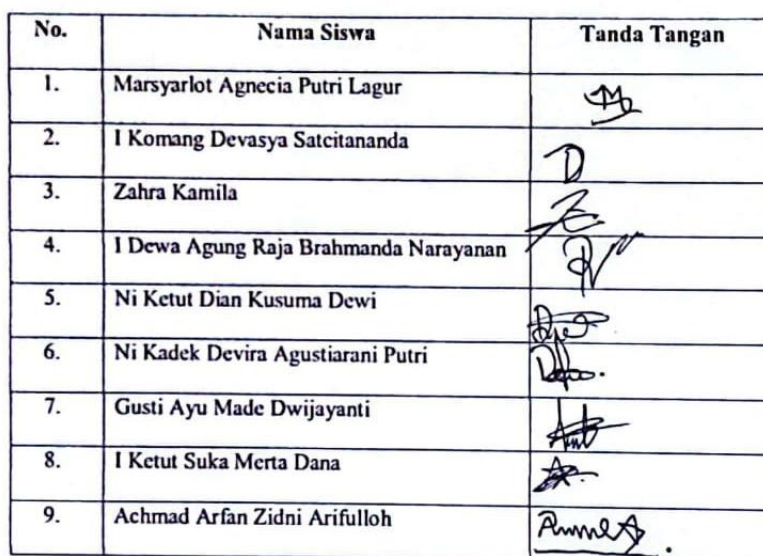 No. Nama Siswa Tanda Tangan
1. Marsyarlot Agnecia Putri Lagur
2. I Komang Devasya Satcitananda
D
3. Zahra Kamila
4. I Dewa Agung Raja Brahmanda Narayanan
5. Ni Ketut Dian Kusuma Dewi
6. Ni Kadek Devira Agustiarani Putri
7. Gusti Ayu Made Dwijayanti
8. I Ketut Suka Merta Dana
9. Achmad Arfan Zidni Arifulloh